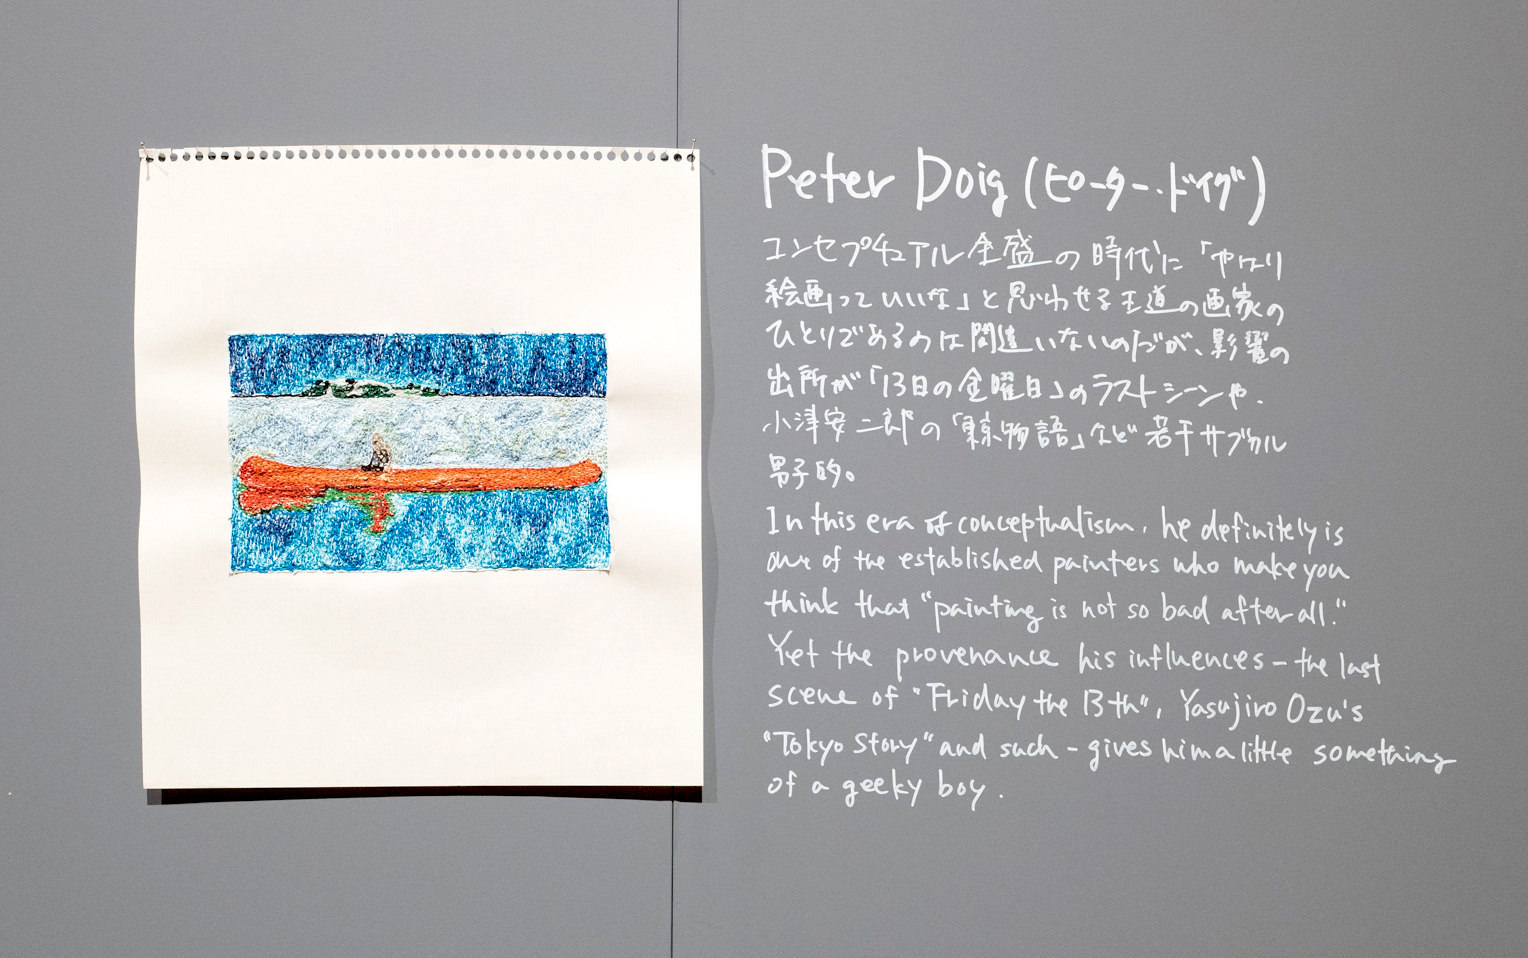 Peter Doig (ピーター・ドイグ)
コンセプチュアル全盛の時代に「やはり
絵画っていいな」と思わせる王道の画家の
ひとりであるのは間違いないのだが、影響の
出所が「13日の金曜日」のラストシーンや、
小津安二郎の「東京物語」など若干サブカル
男子的。
In this era of conceptualism, he definitely is
one of the established painters who make you
think that "painting is not so bad after all."
Yet the provenance his influences – the last
scene of "Friday the 13th", Yasujiro Ozu's
"Tokyo Story" and such – gives him a little something
of a geeky boy.